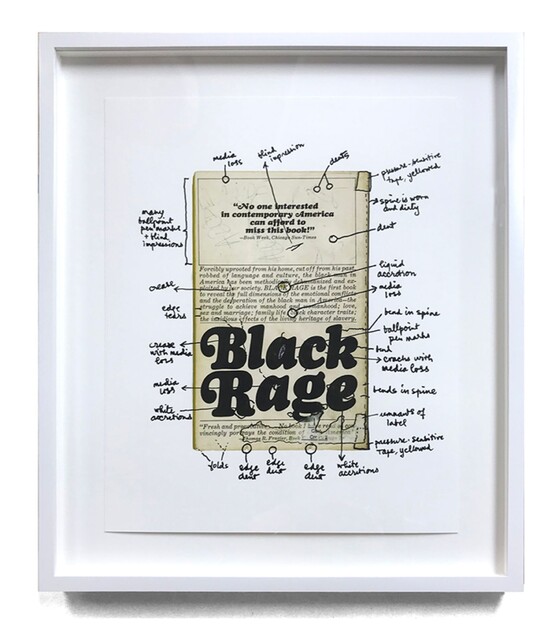 media
loss
blind
impression
dents
pressure-sensitive
tape, yellowed
spine is worn
and dirty
many
ballpoint
pen marks
+ blind
impressions
"No one interested
in contemporary America
can afford to
miss this book!"
—Book Week, Chicago Sun-Times
dent
liquid
accretion
Forcibly uprooted from his home, cut off from his past,
robbed of language and culture, the black man in
America has been methodically dehumanized and ex-
ploited by her society. BLACK RAGE is the first book
to reveal the full dimensions of the emotional conflicts
and the desperation of the black man in America—the
struggle to achieve manhood and womanhood; love,
sex and marriage; family life; black character traits;
the insidious effects of the living heritage of slavery.
crease
media
loss
edge
tears
bend in spine
ballpoint
pen marks
Black
Rage
crease
with media
loss
bend
cracks with
media loss
media
loss
bends in spine
white
accretions
remnants of
label
"Fresh and provocative. No book I have read so con-
vincingly portrays the condition of
Thomas R. Frazier, Book
pressure-sensitive
tape, yellowed
folds
edge
dent
edge
dent
edge
dent
white
accretions